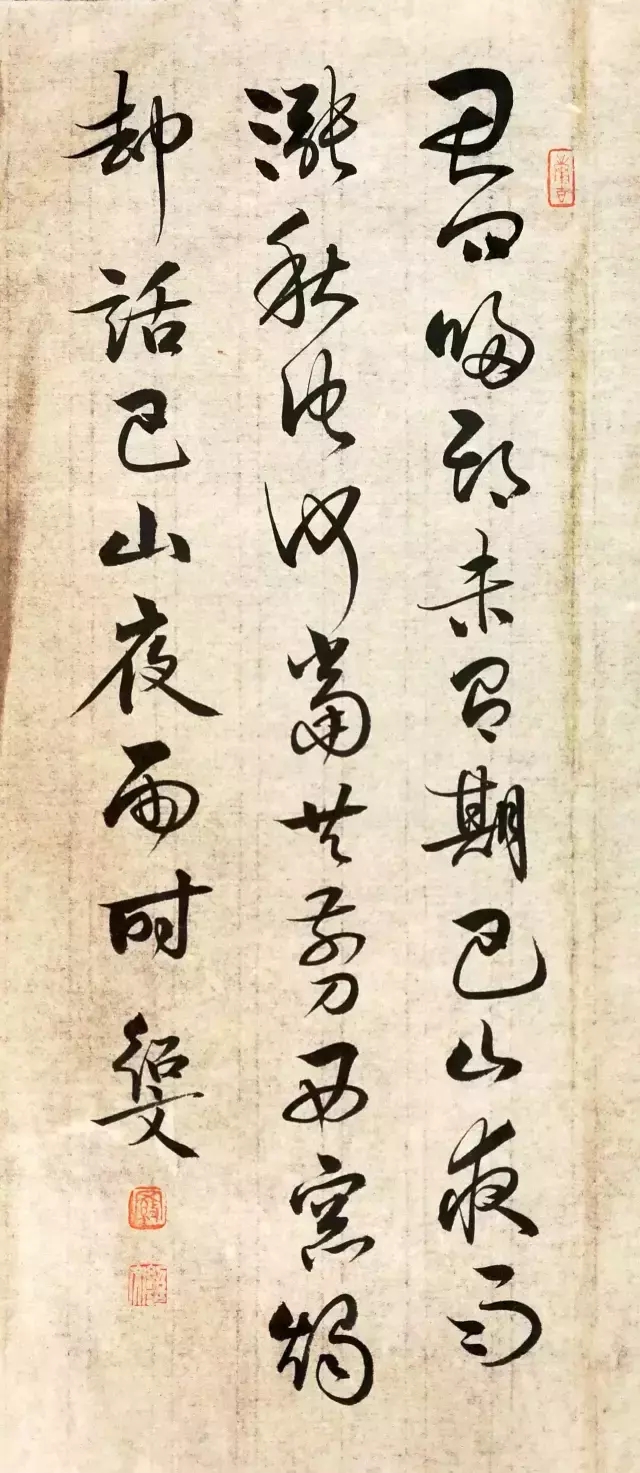 君問歸期未有期巴山夜雨
漲秋池何當共剪西窗燭
却話巴山夜雨时